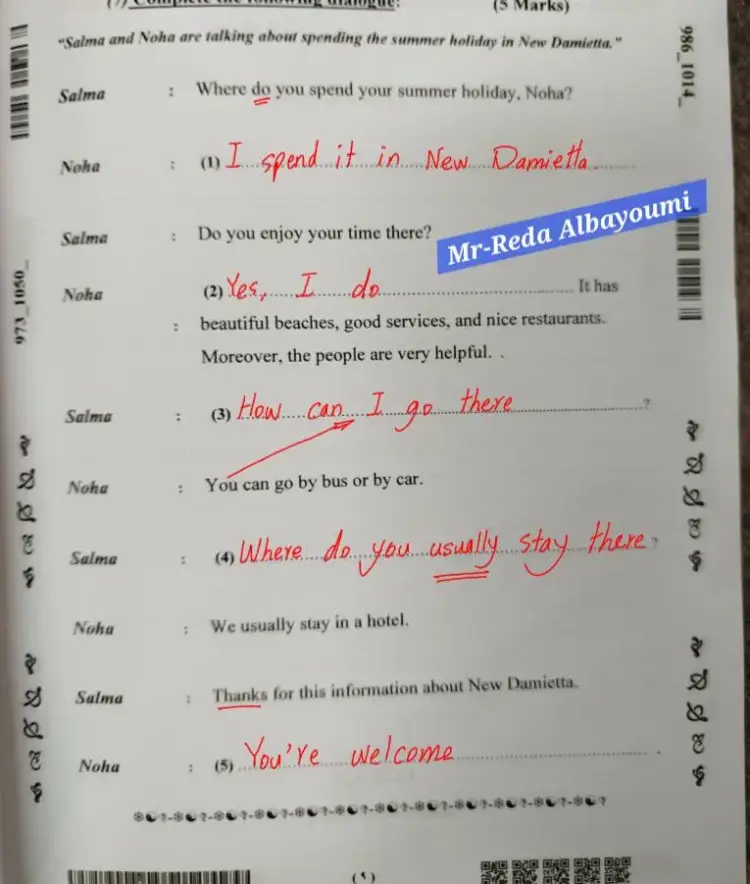 (7) Complete the following dialogue: (5 Marks)
"Salma and Noha are talking about spending the summer holiday in New Damietta."
986_1014_
Salma : Where do you spend your summer holiday, Noha?
Noha : (1) I spend it in New Damietta
Salma : Do you enjoy your time there?
Mr-Reda Albayoumi
973_1050_
Noha (2) Yes, I do It has
: beautiful beaches, good services, and nice restaurants.
Moreover, the people are very helpful. .
Salma : (3) How can I go there ?
Noha : You can go by bus or by car.
Salma : (4) Where do you usually stay there ?
Noha : We usually stay in a hotel.
Salma : Thanks for this information about New Damietta.
Noha : (5) You're welcome .
(٩)